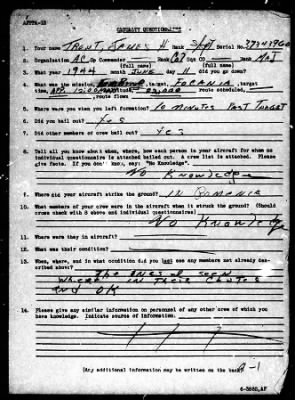 AFPPA-12
CASUALTY QUESTIONNAIRE
1. Your name TRENT, JAMES H Rank S/SGT Serial No.
2. Organization AC Gp Commander Rank Col Sqn CO Rank MAJ
(full name) (full name)
3. What year 1944 month JUNE day 11 did you go down?
4. What was the mission, , target, target
time, , altitude, route scheduled,
, route flown
5. Where were you when you left formation? 10 MINUTES PAST TARGET
6. Did you bail out? YES
7. Did other members of crew bail out? YES
8. Tell all you know about when, where, how each person in your aircraft for whom no
individual questionnaire is attached bailed out. A crew list is attached. Please give
facts. If you don't know, say: "No Knowledge".
NO KNOWLEDGE
9. Where did your aircraft strike the ground? IN ROMANIA
10. What members of your crew were in the aircraft when it struck the ground? (Should
cross check with 8 above and individual questionnaires)
NO KNOWLEDGE
11. Where were they in aircraft?
12. What was their condition?
13. When, where, and in what condition did you last see any members not already des-
cribed above?
THE ONES I SEEN
WHERE IN THEIR CHUTES
AND OK
14. Please give any similar information on personnel of any other crew of which you
have knowledge. Indicate source of information.
(Any additional information may be written on the back)
6-3862, AF